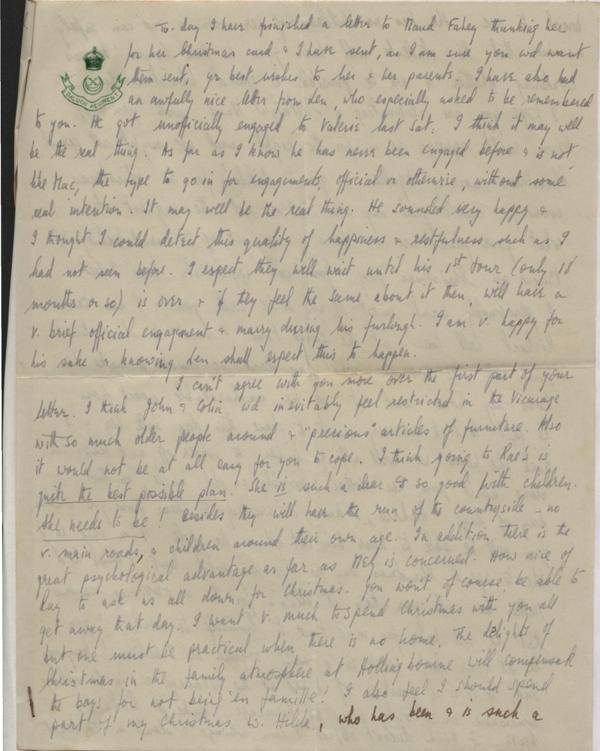 To-day I have finished a letter to Maud Fahey thanking her
for her Christmas card & I have sent, as I am sure you wd want
them sent, yr best wishes to her & her parents. I have also had
BALUCH REGIMENT
an awfully nice letter from Len, who especially asked to be remembered
to you. He got unofficially engaged to Valerie last Sat. I think it may well
be the real thing. As far as I know he has never been engaged before & is not
like Mac, the type to go in for engagements, official or otherwise, without some
real intention. It may well be the real thing. He sounded very happy &
I thought I could detect this quality of happiness & restfulness such as I
had not seen before. I expect they will wait until his 1st tour (only 18
months or so) is over & if they feel the same about it then, will have a
v. brief official engagement & marry during his furlough. I am v. happy for
his sake & knowing Len shall expect this to happen.
I can't agree with you more over the first part of your
letter. I think John & Colin wd inevitably feel restricted in the Vicarage
with so much older people around & "precious" articles of furniture. Also
it would not be at all easy for you to cope. I think going to Rae's is
quite the best possible plan. She is such a dear & so good with children.
She needs to be! Besides they will have the run of the countryside – no
v. main roads, & children around their own age. In addition there is the
great psychological advantage as far as is concerned. How nice of
Ray to ask us all down for Christmas. You won't of course be able to
get away that day. I want v. much to spend Christmas with you all
but one must be practical when there is no home. The delights of
Christmas in the family atmosphere at Hollingbourne will compensate
the boys for not being 'en famille'! I also feel I should spend
part of my Christmas w. Hilda, who has been & is such a